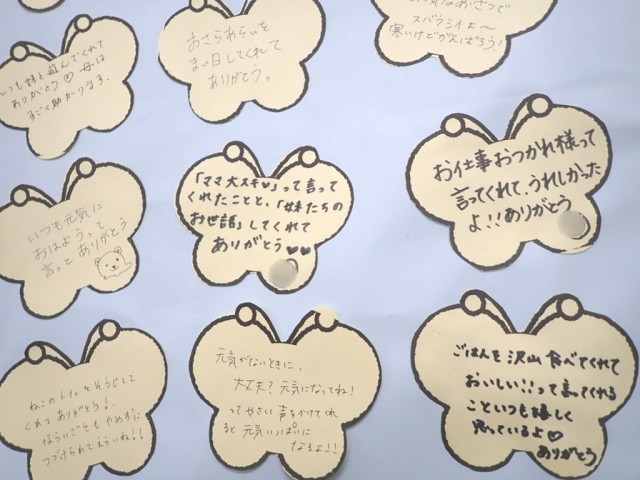 いつも妹と遊んでくれて
ありがとう♡ 母は
すごく助かります。
おさらあらいを
まい日してくれて
ありがとう。
元気なあいさつで
スバラシイよ〜
寒いけどがんばろう!
いつも元気に
おはようって
言って ありがとう
「ママ大スキ♥」って言って
くれたことと、「妹たちの
お世話」してくれて
ありがとう♥♥
お仕事おつかれ様って
言ってくれて、うれしかった
よ!!ありがとう
ねこのトイレをそうじして
くれてありがとう!
ならいごともやめずに
つづけられてえらいね!!
元気がないときに、
大丈夫? 元気になってね!
ってやさしい声をかけてくれ
ると 元気いっぱいに
なるよ!!
ごはんを沢山 食べてくれて
おいしい!!って言ってくれる
こといつも嬉しく
思っているよ♡
ありがとう